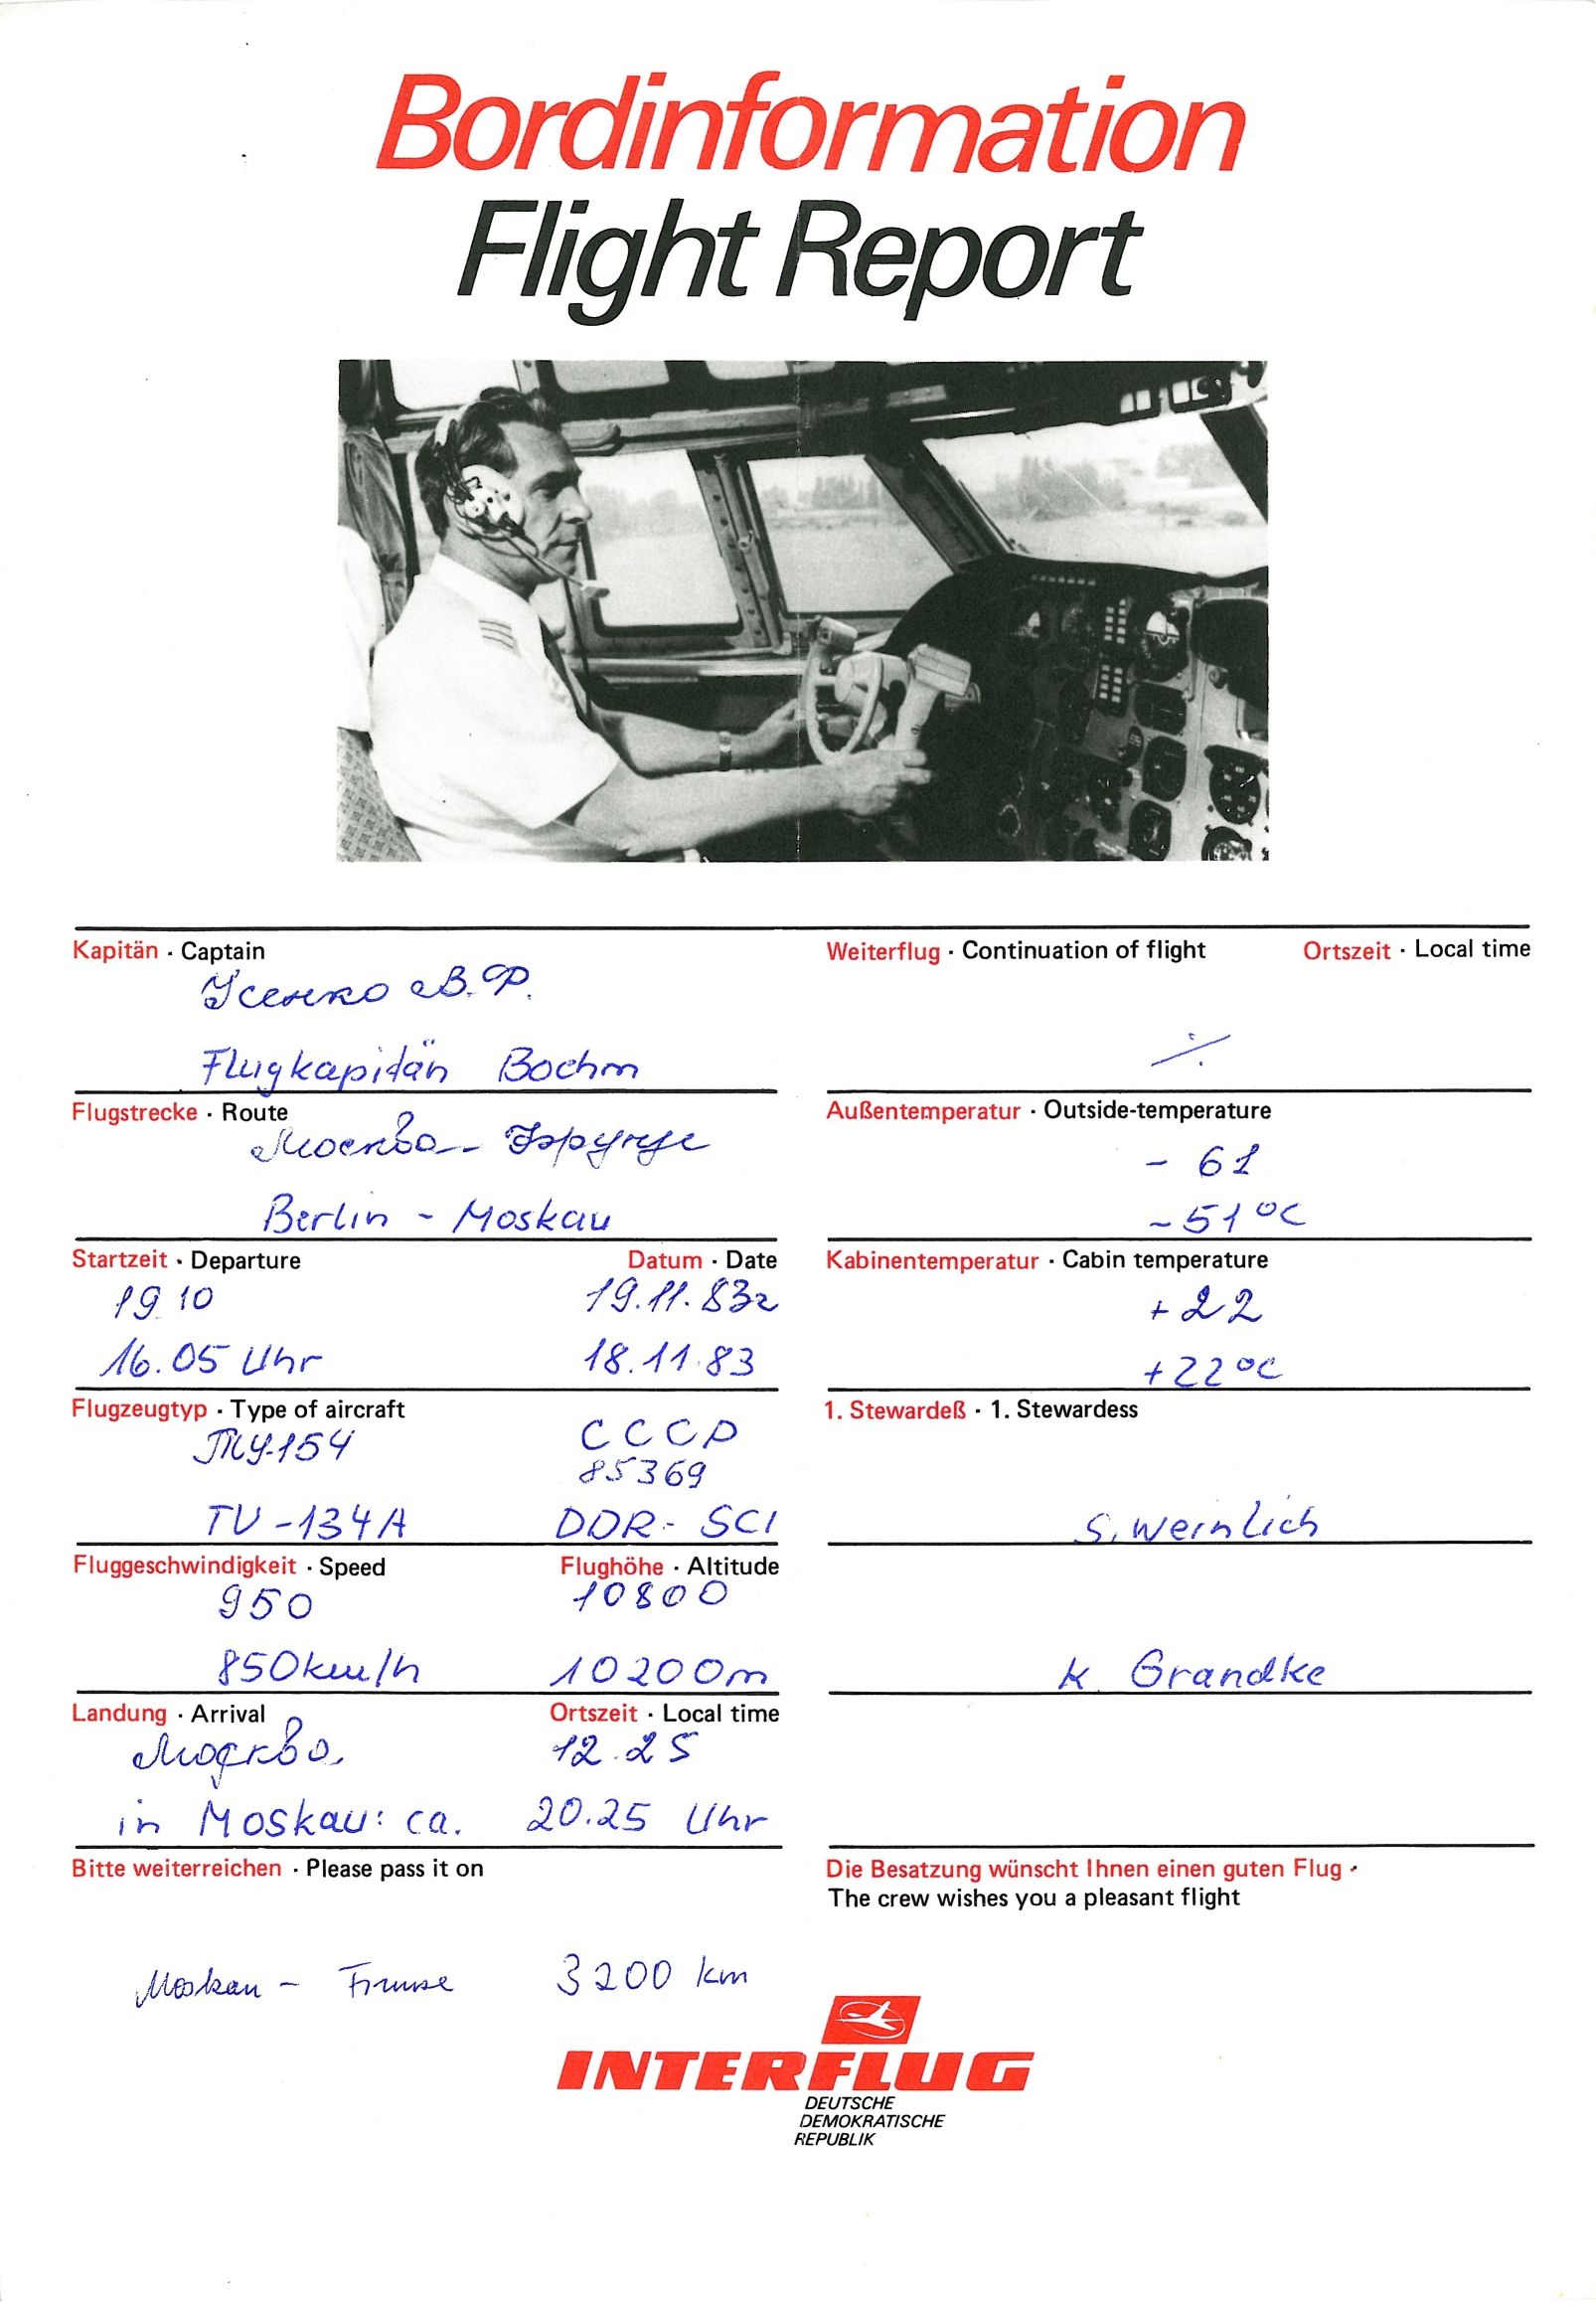 Bordinformation
Flight Report
Kapitän · Captain
Усенко В.Ф.
Flugkapitän Boehm
Weiterflug · Continuation of flight Ortszeit · Local time
⁒
Flugstrecke · Route
Москва - Фрунзе
Berlin - Moskau
Außentemperatur · Outside-temperature
- 61
- 51 °C
Startzeit · Departure Datum · Date
19 10 19.11.83г
16.05 Uhr 18.11.83
Kabinentemperatur · Cabin temperature
+ 22
+ 22 °C
Flugzeugtyp · Type of aircraft
ТУ-154 СССР
85369
TU - 134 A DDR - SCI
1. Stewardeß · 1. Stewardess
S. Weinlich
Fluggeschwindigkeit · Speed Flughöhe · Altitude
950 10800
850 km/h 10200 m
K. Grandke
Landung · Arrival Ortszeit · Local time
Москва 12.25
in Moskau: ca. 20.25 Uhr
Bitte weiterreichen · Please pass it on
Die Besatzung wünscht Ihnen einen guten Flug ·
The crew wishes you a pleasant flight
Moskau - Frunse 3200 km
INTERFLUG
DEUTSCHE
DEMOKRATISCHE
REPUBLIK